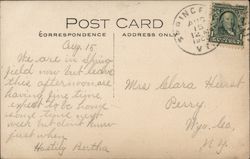 POST CARD
CORRESPONDENCE
ADDRESS ONLY
Aug. 15
We are in Spring
field now but leave
this afternoon, are
having fine time
expect to be home
some time next
wk but don't know
just when
Hastily Bertha
Mrs Clara Hurst
Perry.
Wyo. Co,
N.Y.
AUG